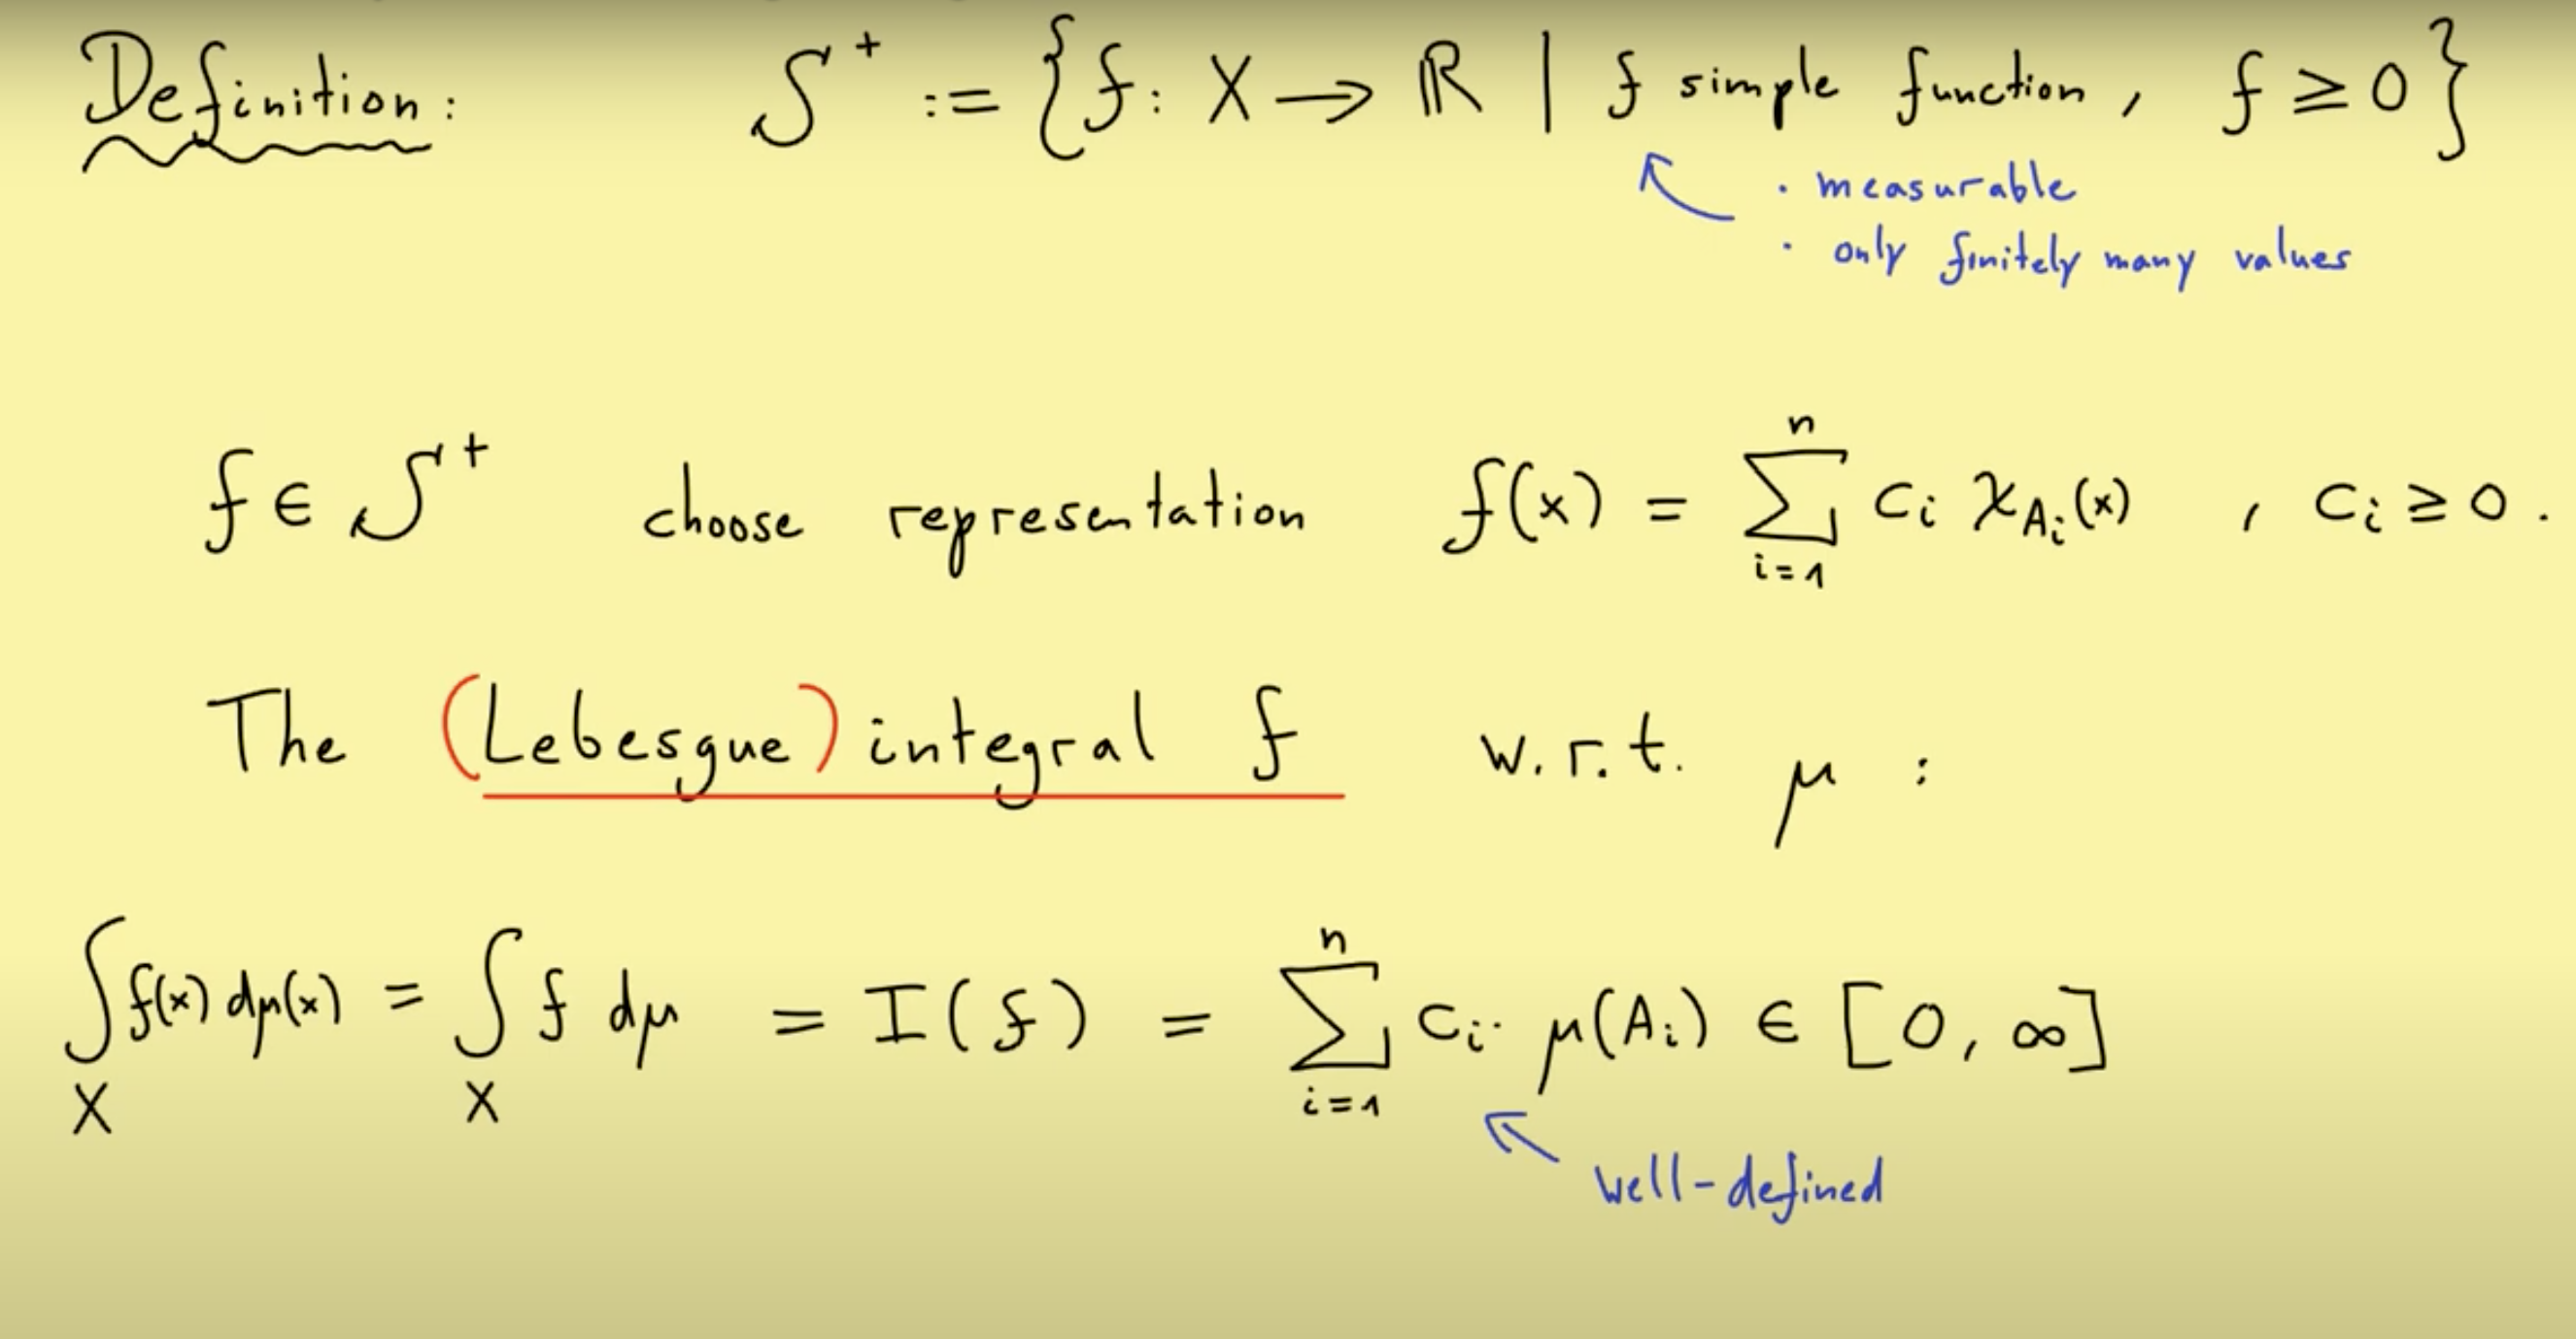 Definition: S⁺ := {f: X → ℝ | f simple function, f ≥ 0}
· measurable
· only finitely many values
f ∈ S⁺ choose representation f(x) = ∑_{i=1}^{n} c_i χ_{A_i}(x) , c_i ≥ 0.
The (Lebesgue) integral f w.r.t. μ :
∫_X f(x) dμ(x) = ∫_X f dμ = I(f) = ∑_{i=1}^{n} c_i · μ(A_i) ∈ [0, ∞]
well-defined